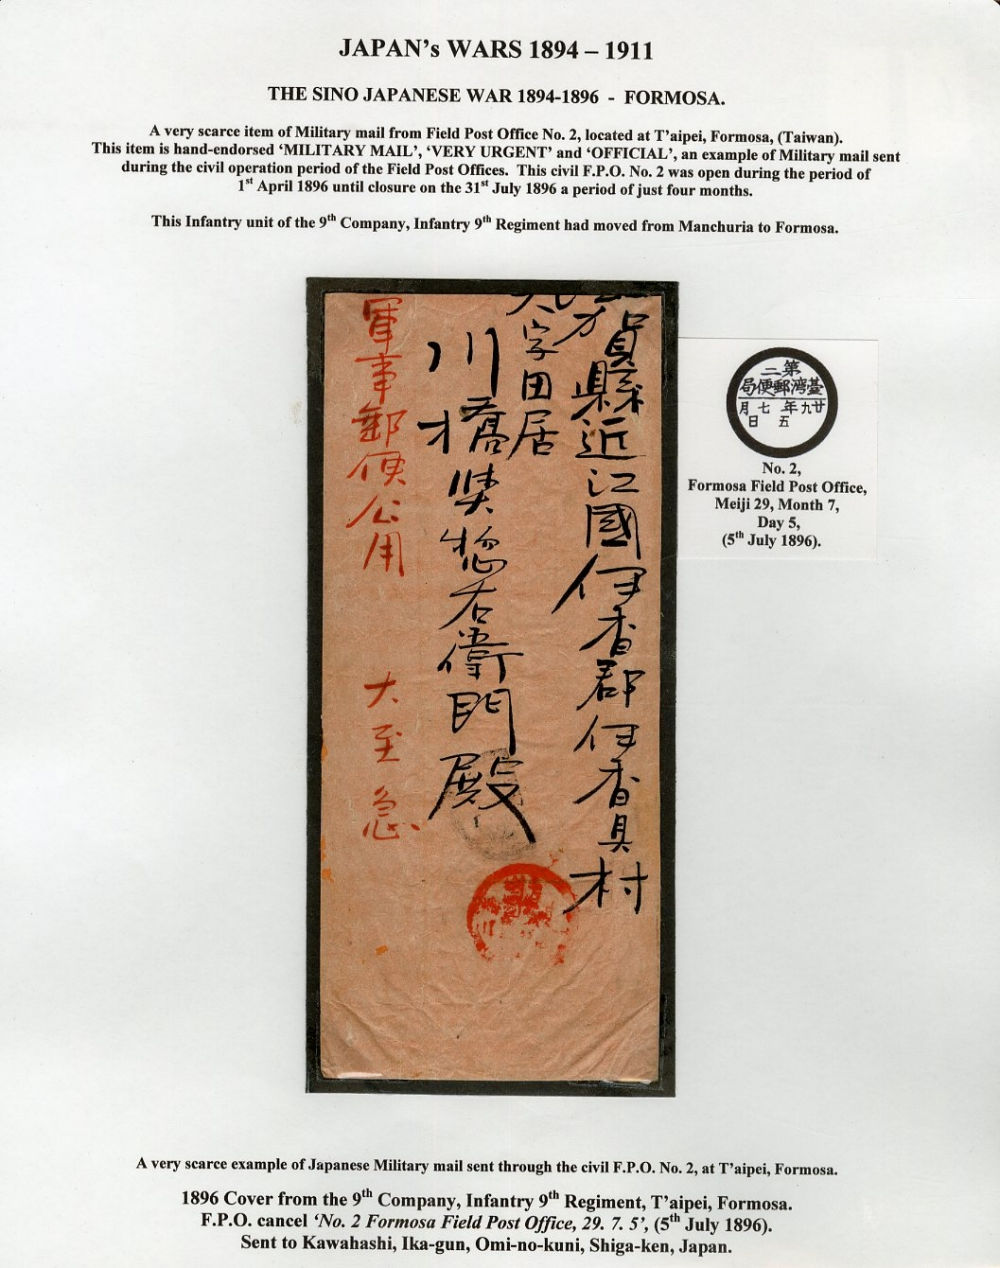 JAPAN's WARS 1894 – 1911
THE SINO JAPANESE WAR 1894-1896 - FORMOSA.
A very scarce item of Military mail from Field Post Office No. 2, located at T'aipei, Formosa, (Taiwan).
This item is hand-endorsed 'MILITARY MAIL', 'VERY URGENT' and 'OFFICIAL', an example of Military mail sent
during the civil operation period of the Field Post Offices. This civil F.P.O. No. 2 was open during the period of
1st April 1896 until closure on the 31st July 1896 a period of just four months.
This Infantry unit of the 9th Company, Infantry 9th Regiment had moved from Manchuria to Formosa.
賀縣近江國伊香郡伊香具村
大字田居
川橋
惣右衛門殿
軍事郵便公用 大至急
第二
臺灣郵便局
廿九年七月
五日
No. 2,
Formosa Field Post Office,
Meiji 29, Month 7,
Day 5,
(5th July 1896).
A very scarce example of Japanese Military mail sent through the civil F.P.O. No. 2, at T'aipei, Formosa.
1896 Cover from the 9th Company, Infantry 9th Regiment, T'aipei, Formosa.
F.P.O. cancel 'No. 2 Formosa Field Post Office, 29. 7. 5', (5th July 1896).
Sent to Kawahashi, Ika-gun, Omi-no-kuni, Shiga-ken, Japan.